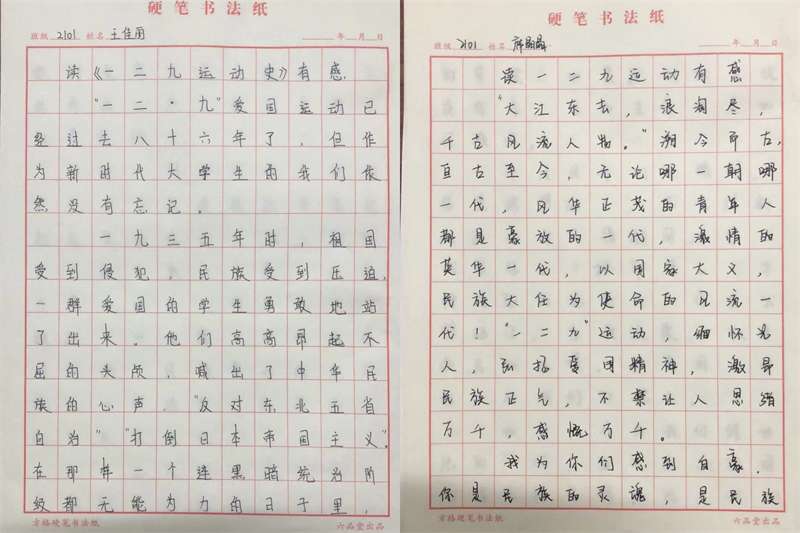 硬笔书法纸
班级 2101 姓名 王佳雨 年 月 日
读《一二九运动史》有感
"一二·九"爱国运动已
经过去八十六年了，但作
为新时代大学生的我们依
然没有忘记。
一九三五年时，祖国
受到侵犯，民族受到压迫，
一群爱国的学生勇敢地站
了出来。他们高高昂起不
屈的头颅，喊出了中华民
族的心声，"反对东北五省
自治""打倒日本帝国主义"。
在那样一个连黑暗统治阶
级都无能为力的日子里，
方格硬笔书法纸 六品堂出品
硬笔书法纸
班级 2101 姓名 年 月 日
读一二九运动有感
"大江东去，浪淘尽，
千古风流人物。"溯今昂古，
自古至今，无论哪一朝哪
一代，风华正茂的青年人
都是豪放的一代，激情的
英华一代，以国家大义，
民族大任为使命的风流一
代！"一二九"运动，缅怀先
人，弘扬爱国精神，激昂
民族正气，不禁让人思绪
万千，感慨万千。
我为你们感到自豪，
你是民族的灵魂，是民族
方格硬笔书法纸 六品堂出品